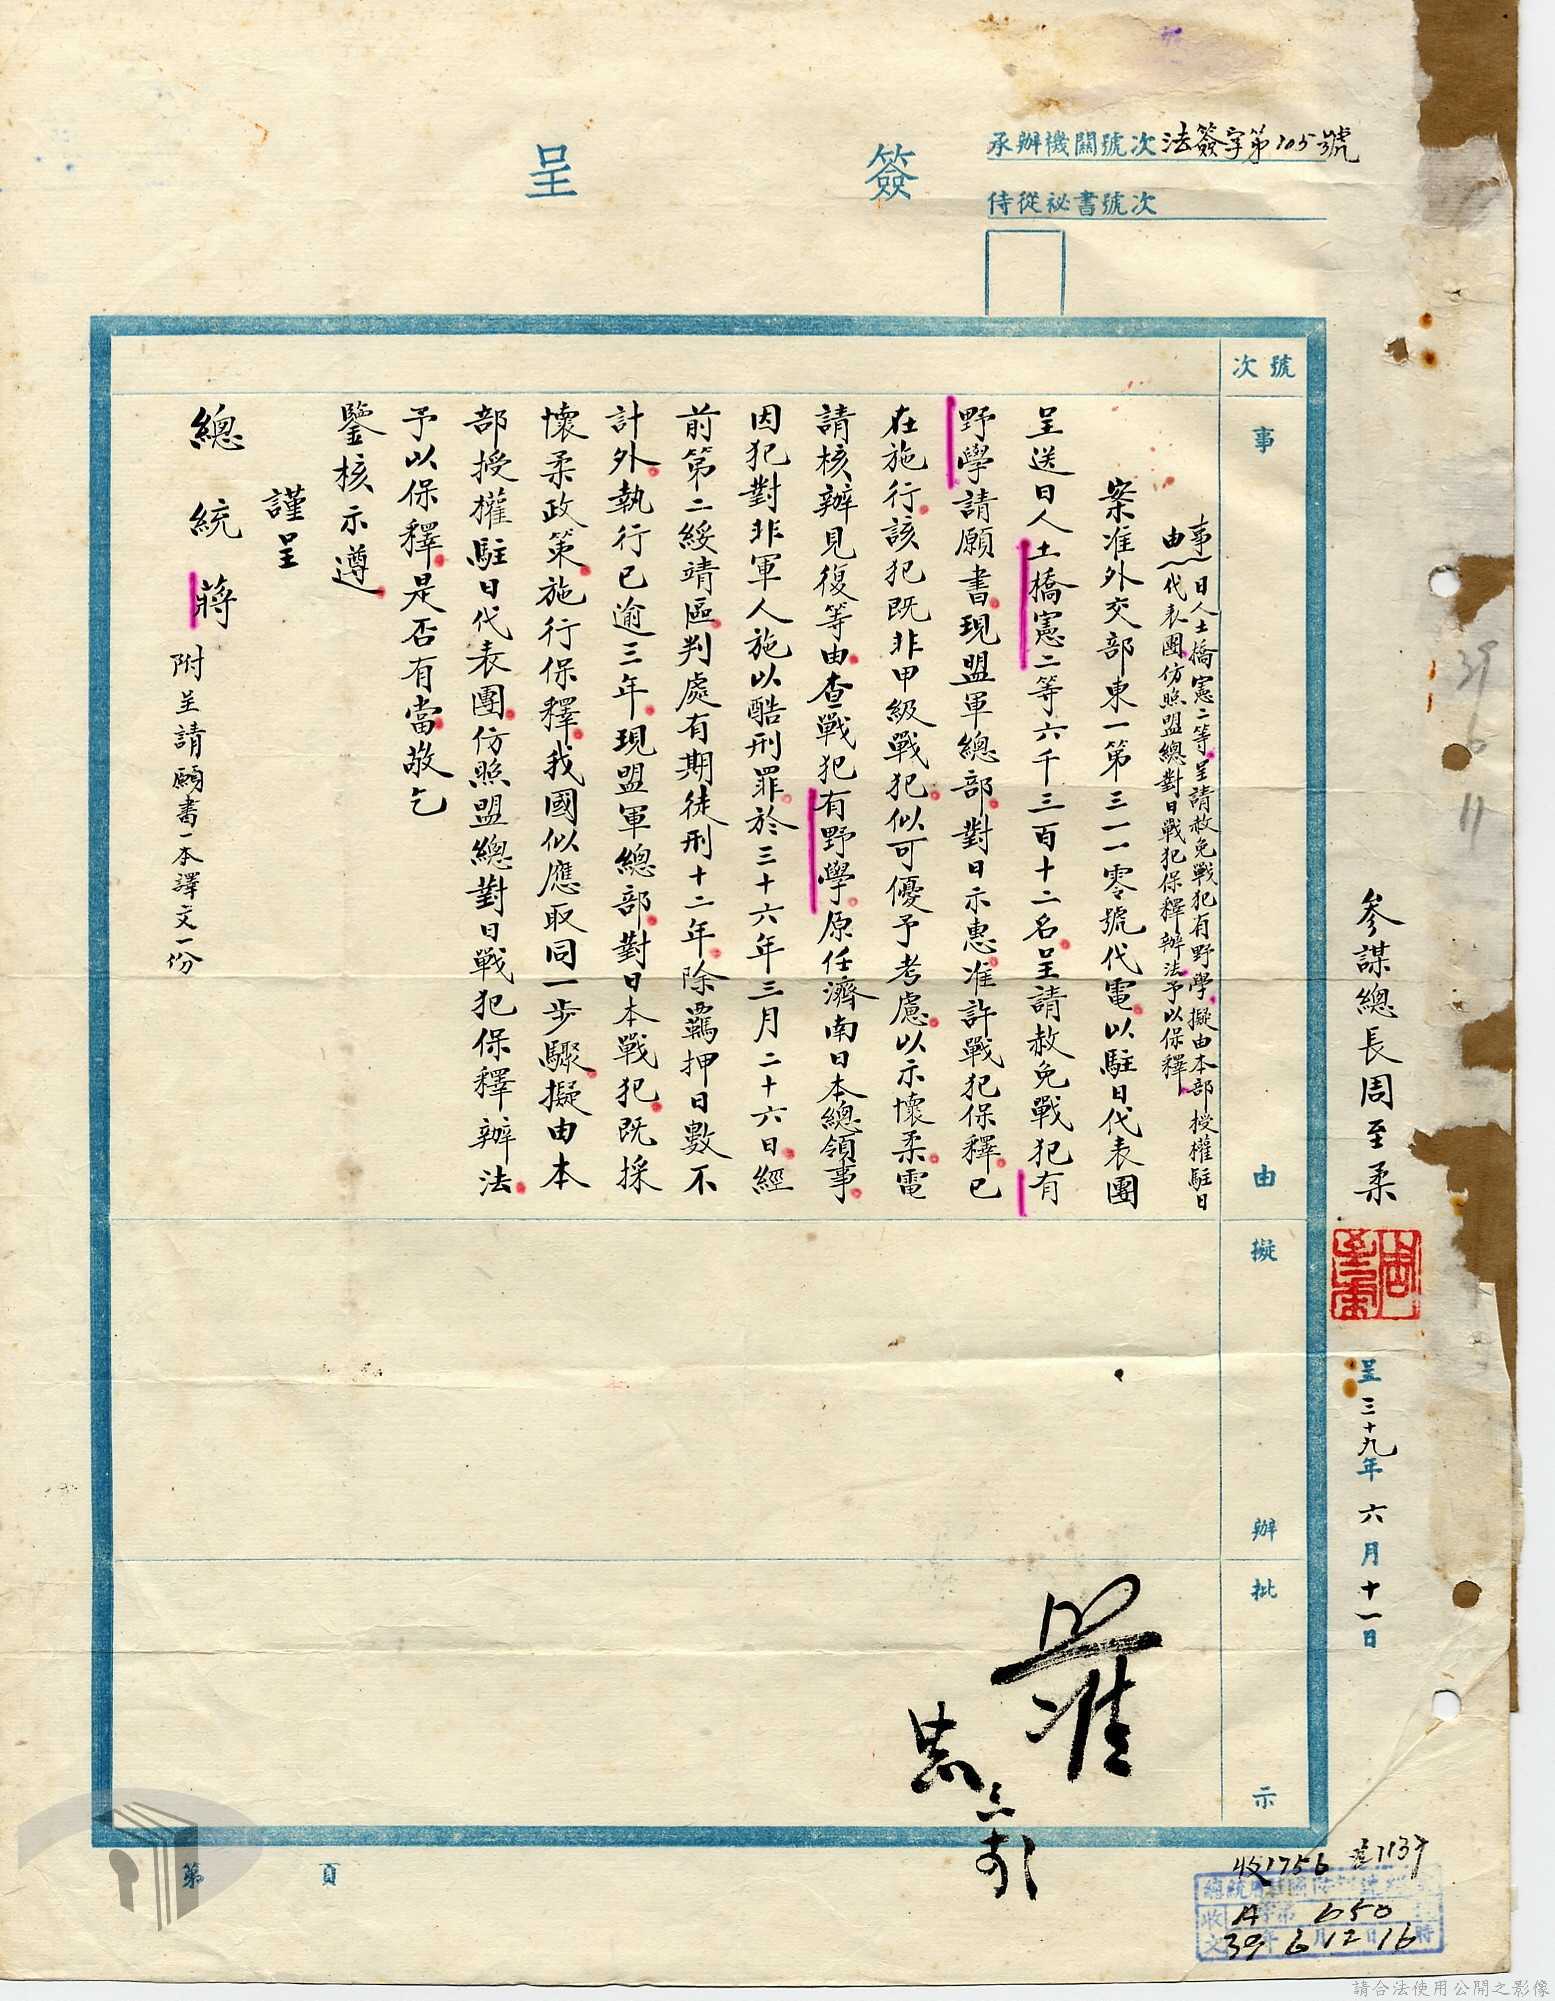 簽呈
承辦機關號次 法簽字第105號
侍從祕書號次
號次
事由
擬辦
批示
參謀總長周至柔
呈 三十九年六月十一日
事由 日人土橋憲二等呈請赦免戰犯有野學擬由本部授權駐日
代表團仿照盟總對日戰犯保釋辦法予以保釋
案准外交部東一第三一一零號代電以駐日代表團
呈送日人土橋憲二等六千三百十二名呈請赦免戰犯有
野學請願書現盟軍總部對日示惠准許戰犯保釋已
在施行該犯既非甲級戰犯似可優予考慮以示懷柔電
請核辦見復等由查戰犯有野學原任濟南日本總領事
因犯對非軍人施以酷刑罪於三十六年三月二十六日經
前第二綏靖區判處有期徒刑十二年除羈押日數不
計外執行已逾三年現盟軍總部對日本戰犯既採
懷柔政策施行保釋我國似應取同一步驟擬由本
部授權駐日代表團仿照盟總對日戰犯保釋辦法
予以保釋是否有當敬乞
鑒核示遵
謹呈
總統蔣
附呈請願書一本譯文一份
准
第 頁
收1756
總統府
收文
A 字第 650 號
39年6月12日16時
39 6 11
請合法使用公開之影像